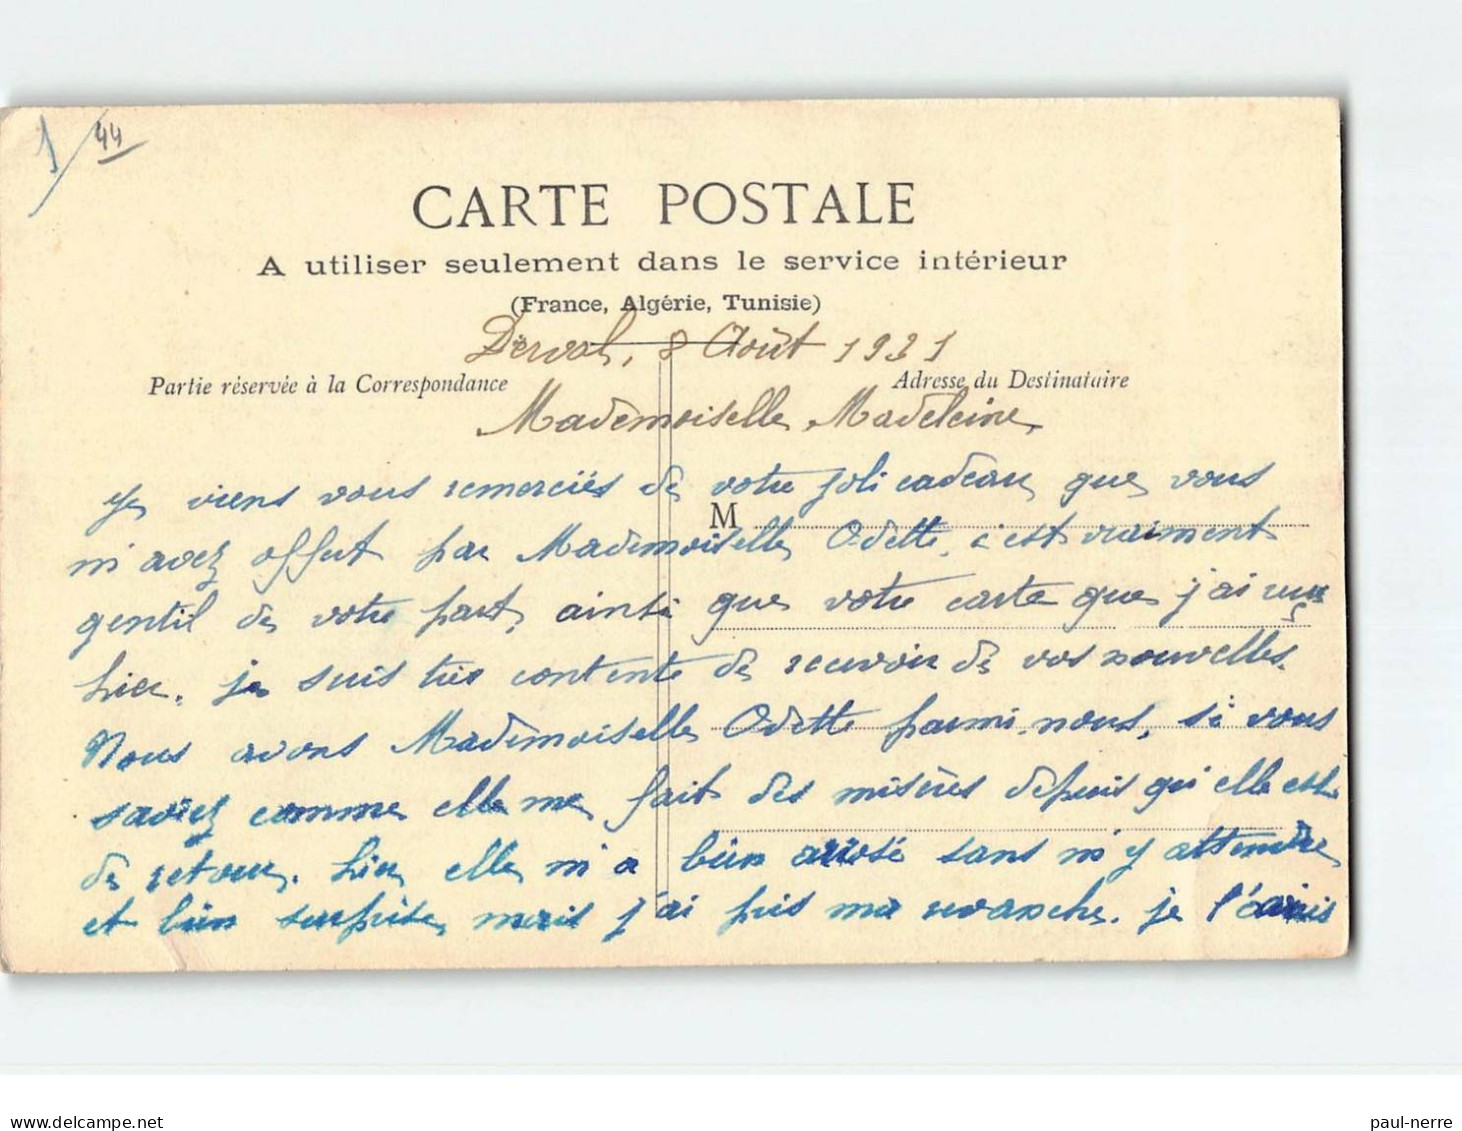 1/44
CARTE POSTALE
A utiliser seulement dans le service intérieur
(France, Algérie, Tunisie)
Derval, 8 Août 1921
Partie réservée à la Correspondance
Adresse du Destinataire
Mademoiselle Madeleine,
M
Je viens vous remerciés de votre joli cadeau que vous
m'avez offert par Mademoiselle Odette, c'est vraiment
gentil de votre part, ainsi que votre carte que j'ai reçus
hier. je suis très contente de recevoir de vos nouvelles.
Nous avons Mademoiselle Odette parmi nous, si vous
saviez comme elle me fait des misères depuis qu'elle est
de retour. hier elle m'a bien arrosé sans m'y attendre
et bien surprise, mais j'ai pris ma revanche. je l'
paul-nerre